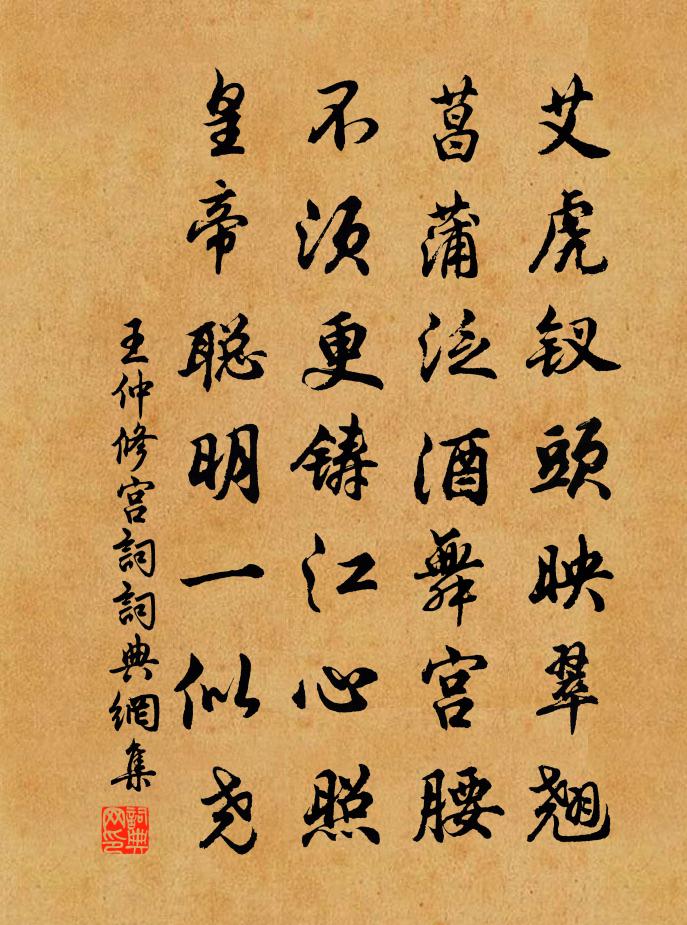 艾虎钗頭映翠翘
菖蒲泛酒舞宫腰
不须更鑄江心照
皇帝聪明一似尧
王仲修宫詞詞典網集
詞典网印